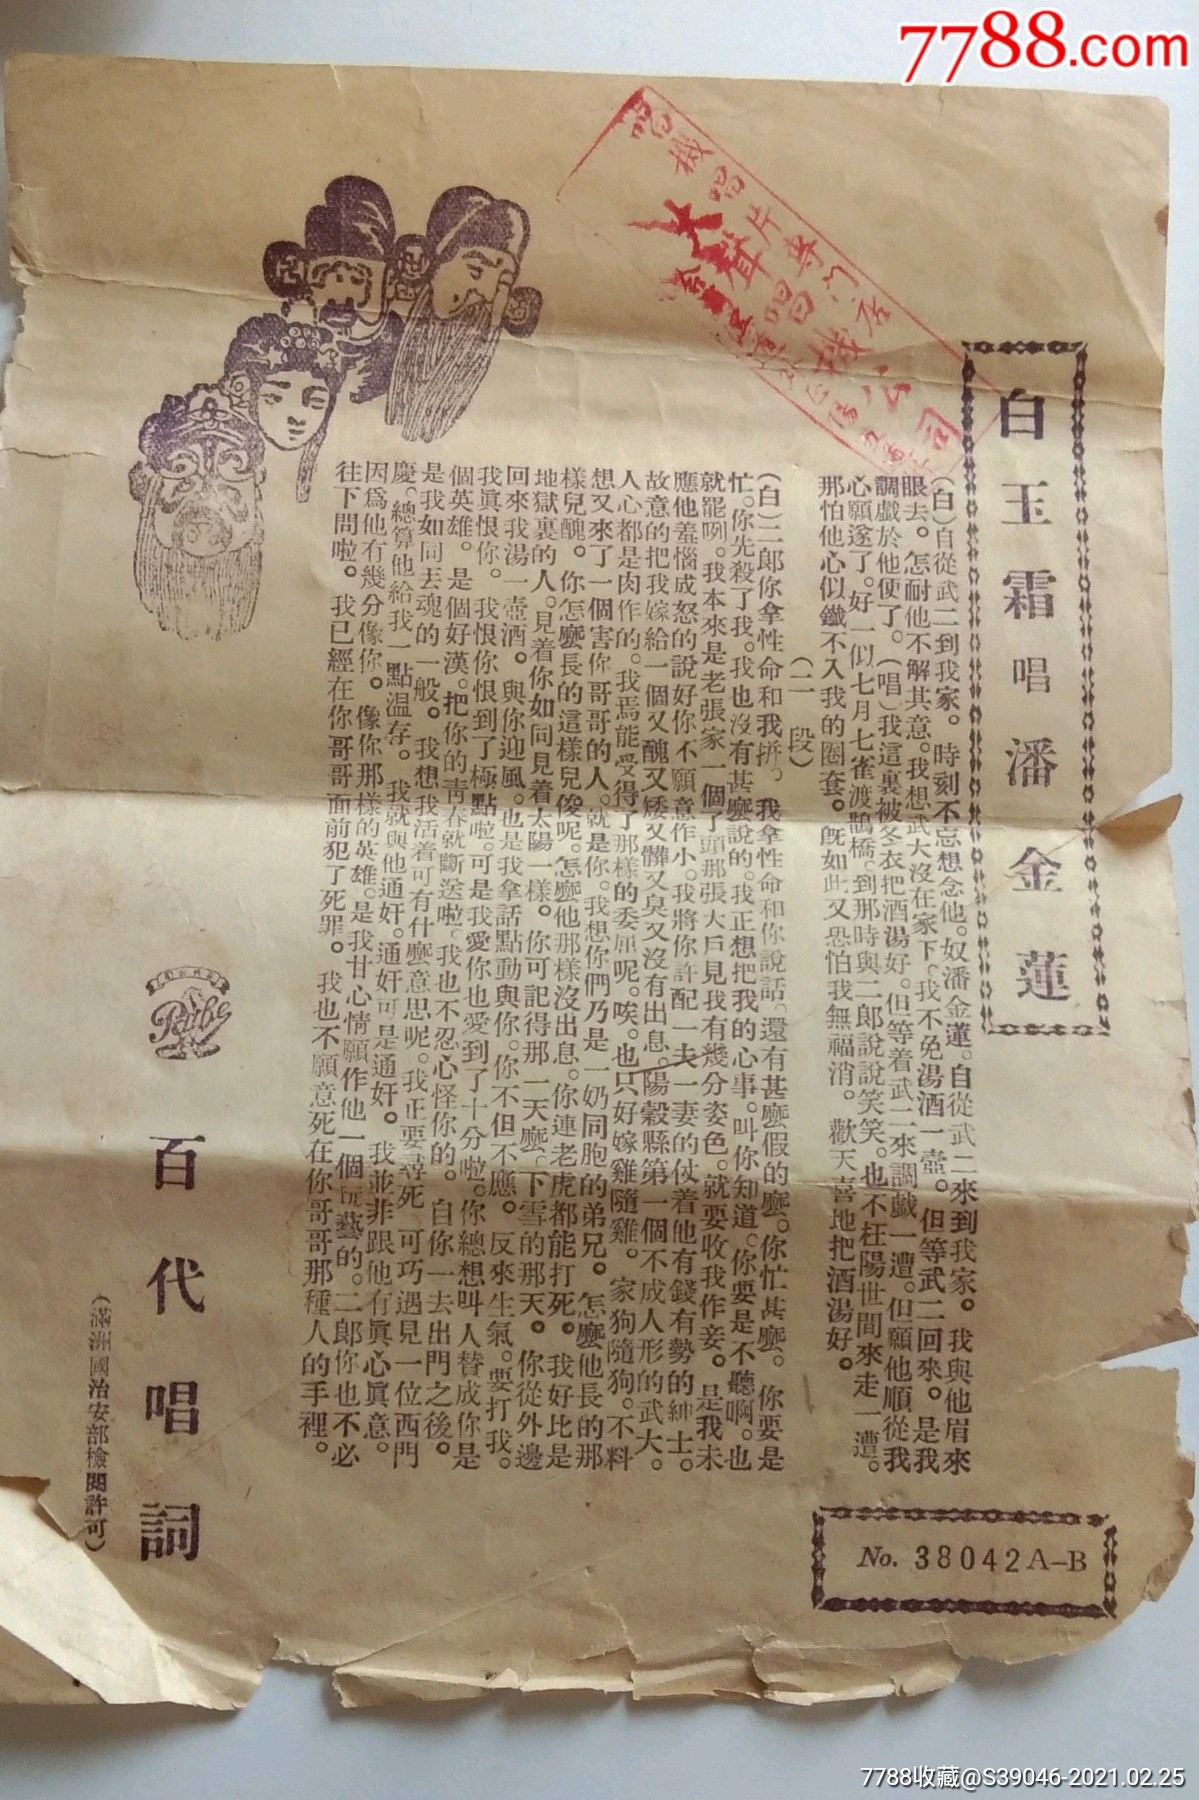 7788.com
唱機唱片專门店
大聲唱機公司
白玉霜唱潘金蓮
(白)自從武二到我家。時刻不忘想念他。奴潘金蓮。自從武二來到我家。我與他眉來
眼去。怎耐他不解其意。我想武大沒在家下。我不免湯酒一壺。但等武二回來。是我
調戲於他便了。(唱)我這裏被冬衣把酒湯好。但等着武二來調戲一遭。但願他順從我
心願遂了。好一似七月七雀渡鵲橋。到那時與二郎說說笑笑。也不枉陽世間來走一遭。
那怕他心似鐵不入我的圈套。旣如此又恐怕我無福消。歡天喜地把酒湯好。
(二段)
(白)二郎你拿性命和我拼。我拿性命和你說話。還有甚麼假的麼。你忙甚麼。你要是
忙。你先殺了我。我也沒有甚麼說的。我正想把我的心事。叫你知道。你要是不聽啊。也
就罷咧。我本來是老張家一個了頭那張大戶見我有幾分姿色。就要收我作妾。是我未
應他羞惱成怒的說好你不願意作小。我將你許配一夫一妻的仗着他有錢有勢的紳士。
故意的把我嫁給一個又醜又矮又髒又臭又沒有出息。陽穀縣第一個不成人形的武大。
人心都是肉作的。我焉能受得了那樣的委屈呢。唉。也只好嫁雞隨雞。家狗隨狗。不料
想又來了一個害你哥哥的人。就是你。我想你們乃是一奶同胞的弟兄。怎麼他長的那
樣兒醜。你怎麼長的這樣兒俊呢。怎麼他那樣沒出息。你連老虎都能打死。我好比是
地獄裏的人。見着你如同見着太陽一樣。你可記得那一天麼。下雪的那天。你從外邊
回來我湯一壺酒。與你迎風。也是我拿話點動與你。你不但不應。反來生氣。要打我。
我眞恨你。我恨你恨到了極點啦。可是我愛你也愛到了十分啦。你總想叫人替成你是
個英雄。是個好漢。把你的靑春就斷送啦。我也不忍心怪你的。自你一去出門之後。
是我如同丟魂的一般。我想我活着可有什麼意思呢。我正要尋死 可巧遇見一位西門
慶。總算他給我一點温存。我就與他通奸。通奸可是通奸。我並非跟他有眞心眞意。
因爲他有幾分像你。像你那樣的英雄。是我甘心情願作他一個玩藝的。二郎你也不必
往下問啦。我已經在你哥哥面前犯了死罪。我也不願意死在你哥哥那種人的手裡。
百代唱詞
(滿洲國治安部檢閱許可)
No. 38042A-B
7788收藏@S39046-2021.02.25